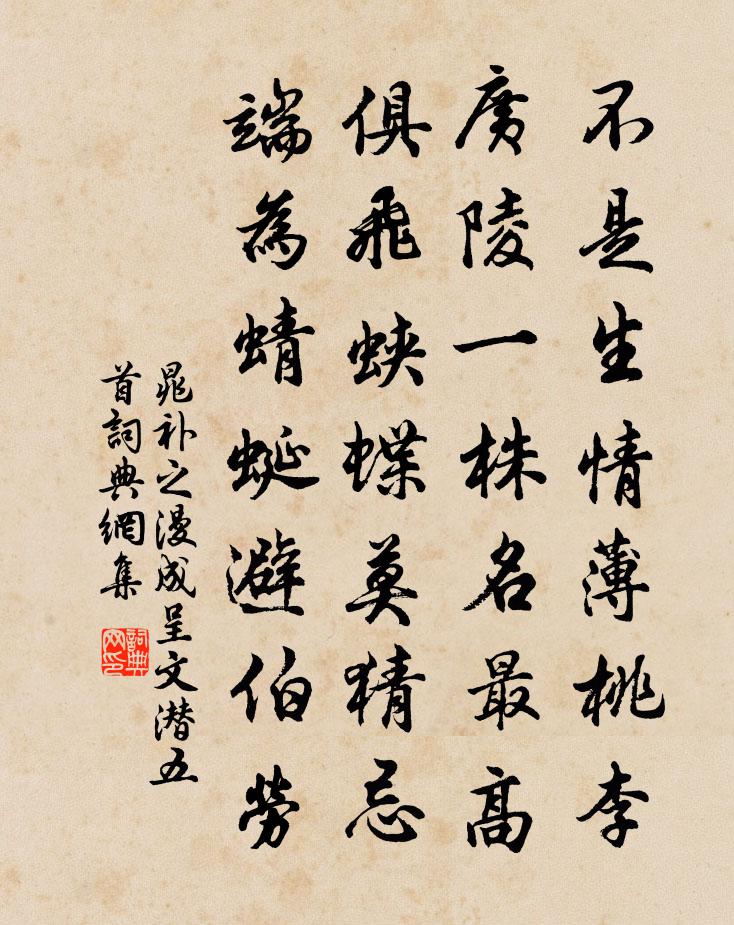 不是生情薄桃李
廣陵一株名最高
俱飛蛺蝶莫猜忌
端為蜻蜒避伯勞
晁补之漫成呈文潜五
首詞典網集
詞典网印